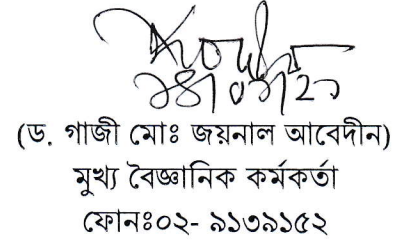 (ড. গাজী মোঃ জয়নাল আবেদীন)
মুখ্য বৈজ্ঞানিক কর্মকর্তা
ফোনঃ০২- ৯১৩৯১৫২